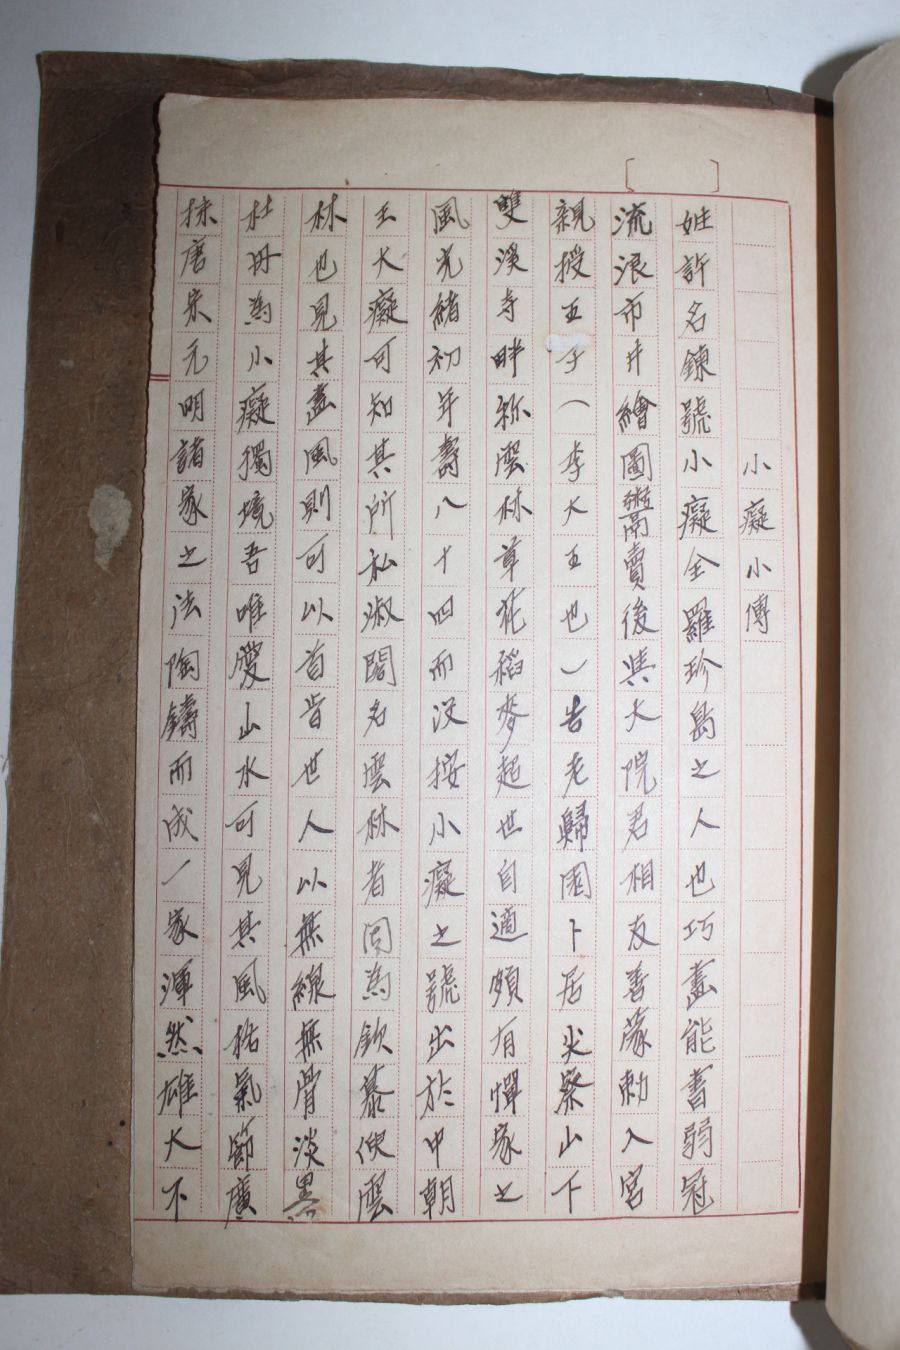 小癡小傳
姓許名鍊號小癡全羅珍島之人也巧畵能書弱冠
流浪市井繪圖鬻賣後與大院君相友善蒙勅入宮
親授五子(李大五也)告老歸園卜居尖察山下
雙溪寺畔称雲林草花稻麥超世自適頗有憚家之
風光緒初年壽八十四而沒按小癡之號出於中朝
王大癡可知其所私淑閣名雲林者因為欽慕倪雲
林也見其畵風則可以首肯世人以無線無骨淡墨
杜冊為小癡獨境吾唯愛山水可見其風格氣節廣
抹唐宋元明諸家之法陶鑄而成一家渾然雄大不